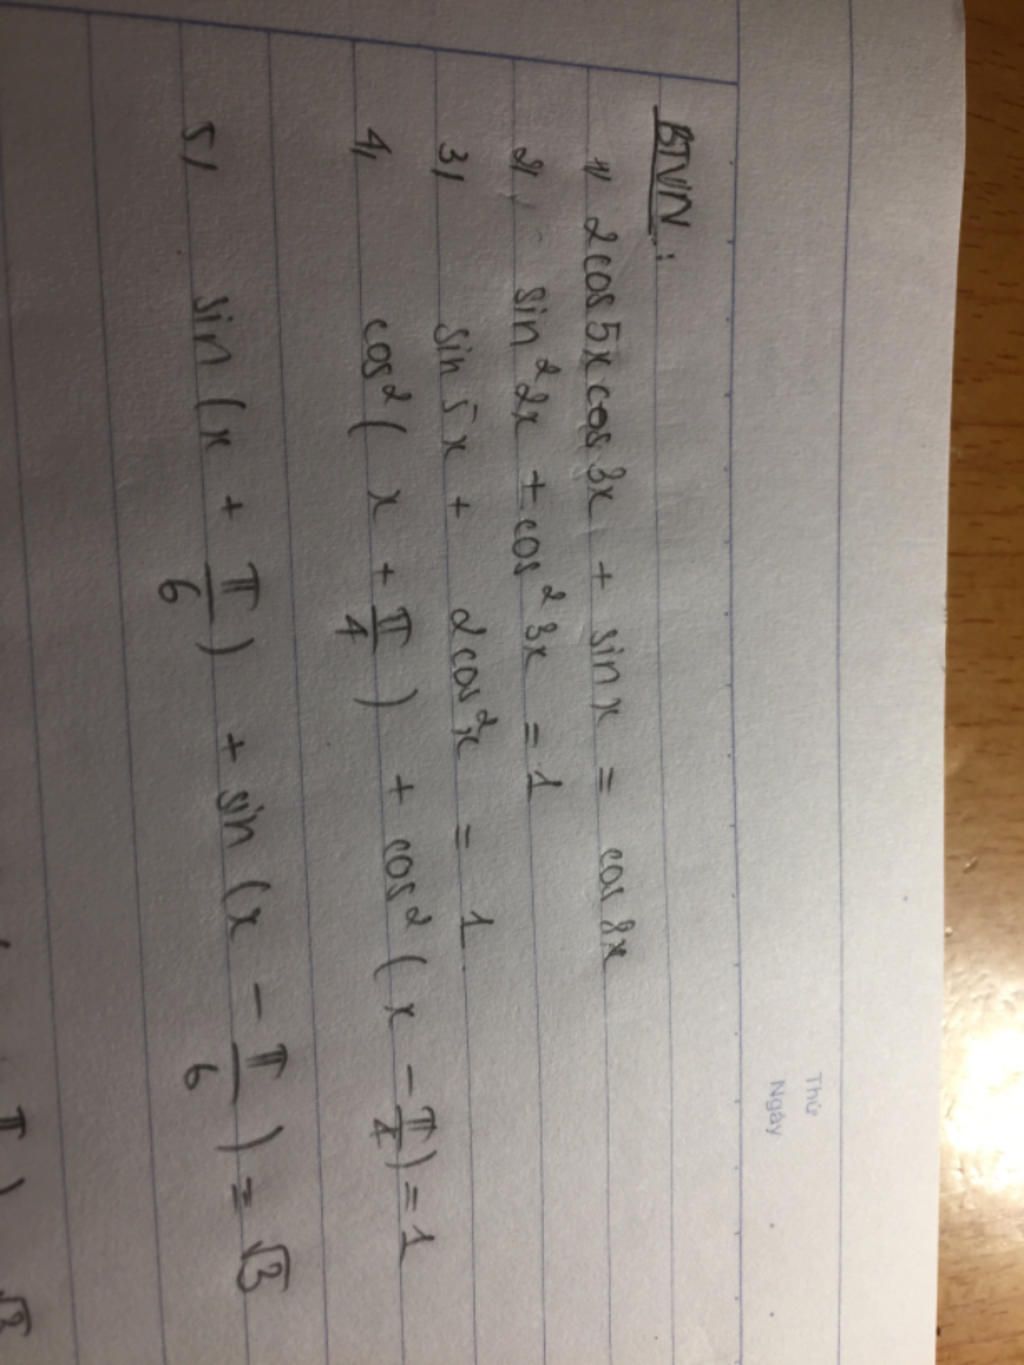 Thứ
Ngày
BTVN :
1) 2cos5xcos3x + sin x = cos 8x
2) sin²2x + cos²3x = 1
3) sin 5x + 2cos²x = 1
4) cos²( x + π/4 ) + cos²( x - π/4 ) = 1
5) sin ( x + π/6 ) + sin ( x - π/6 ) = √3
π ) √3